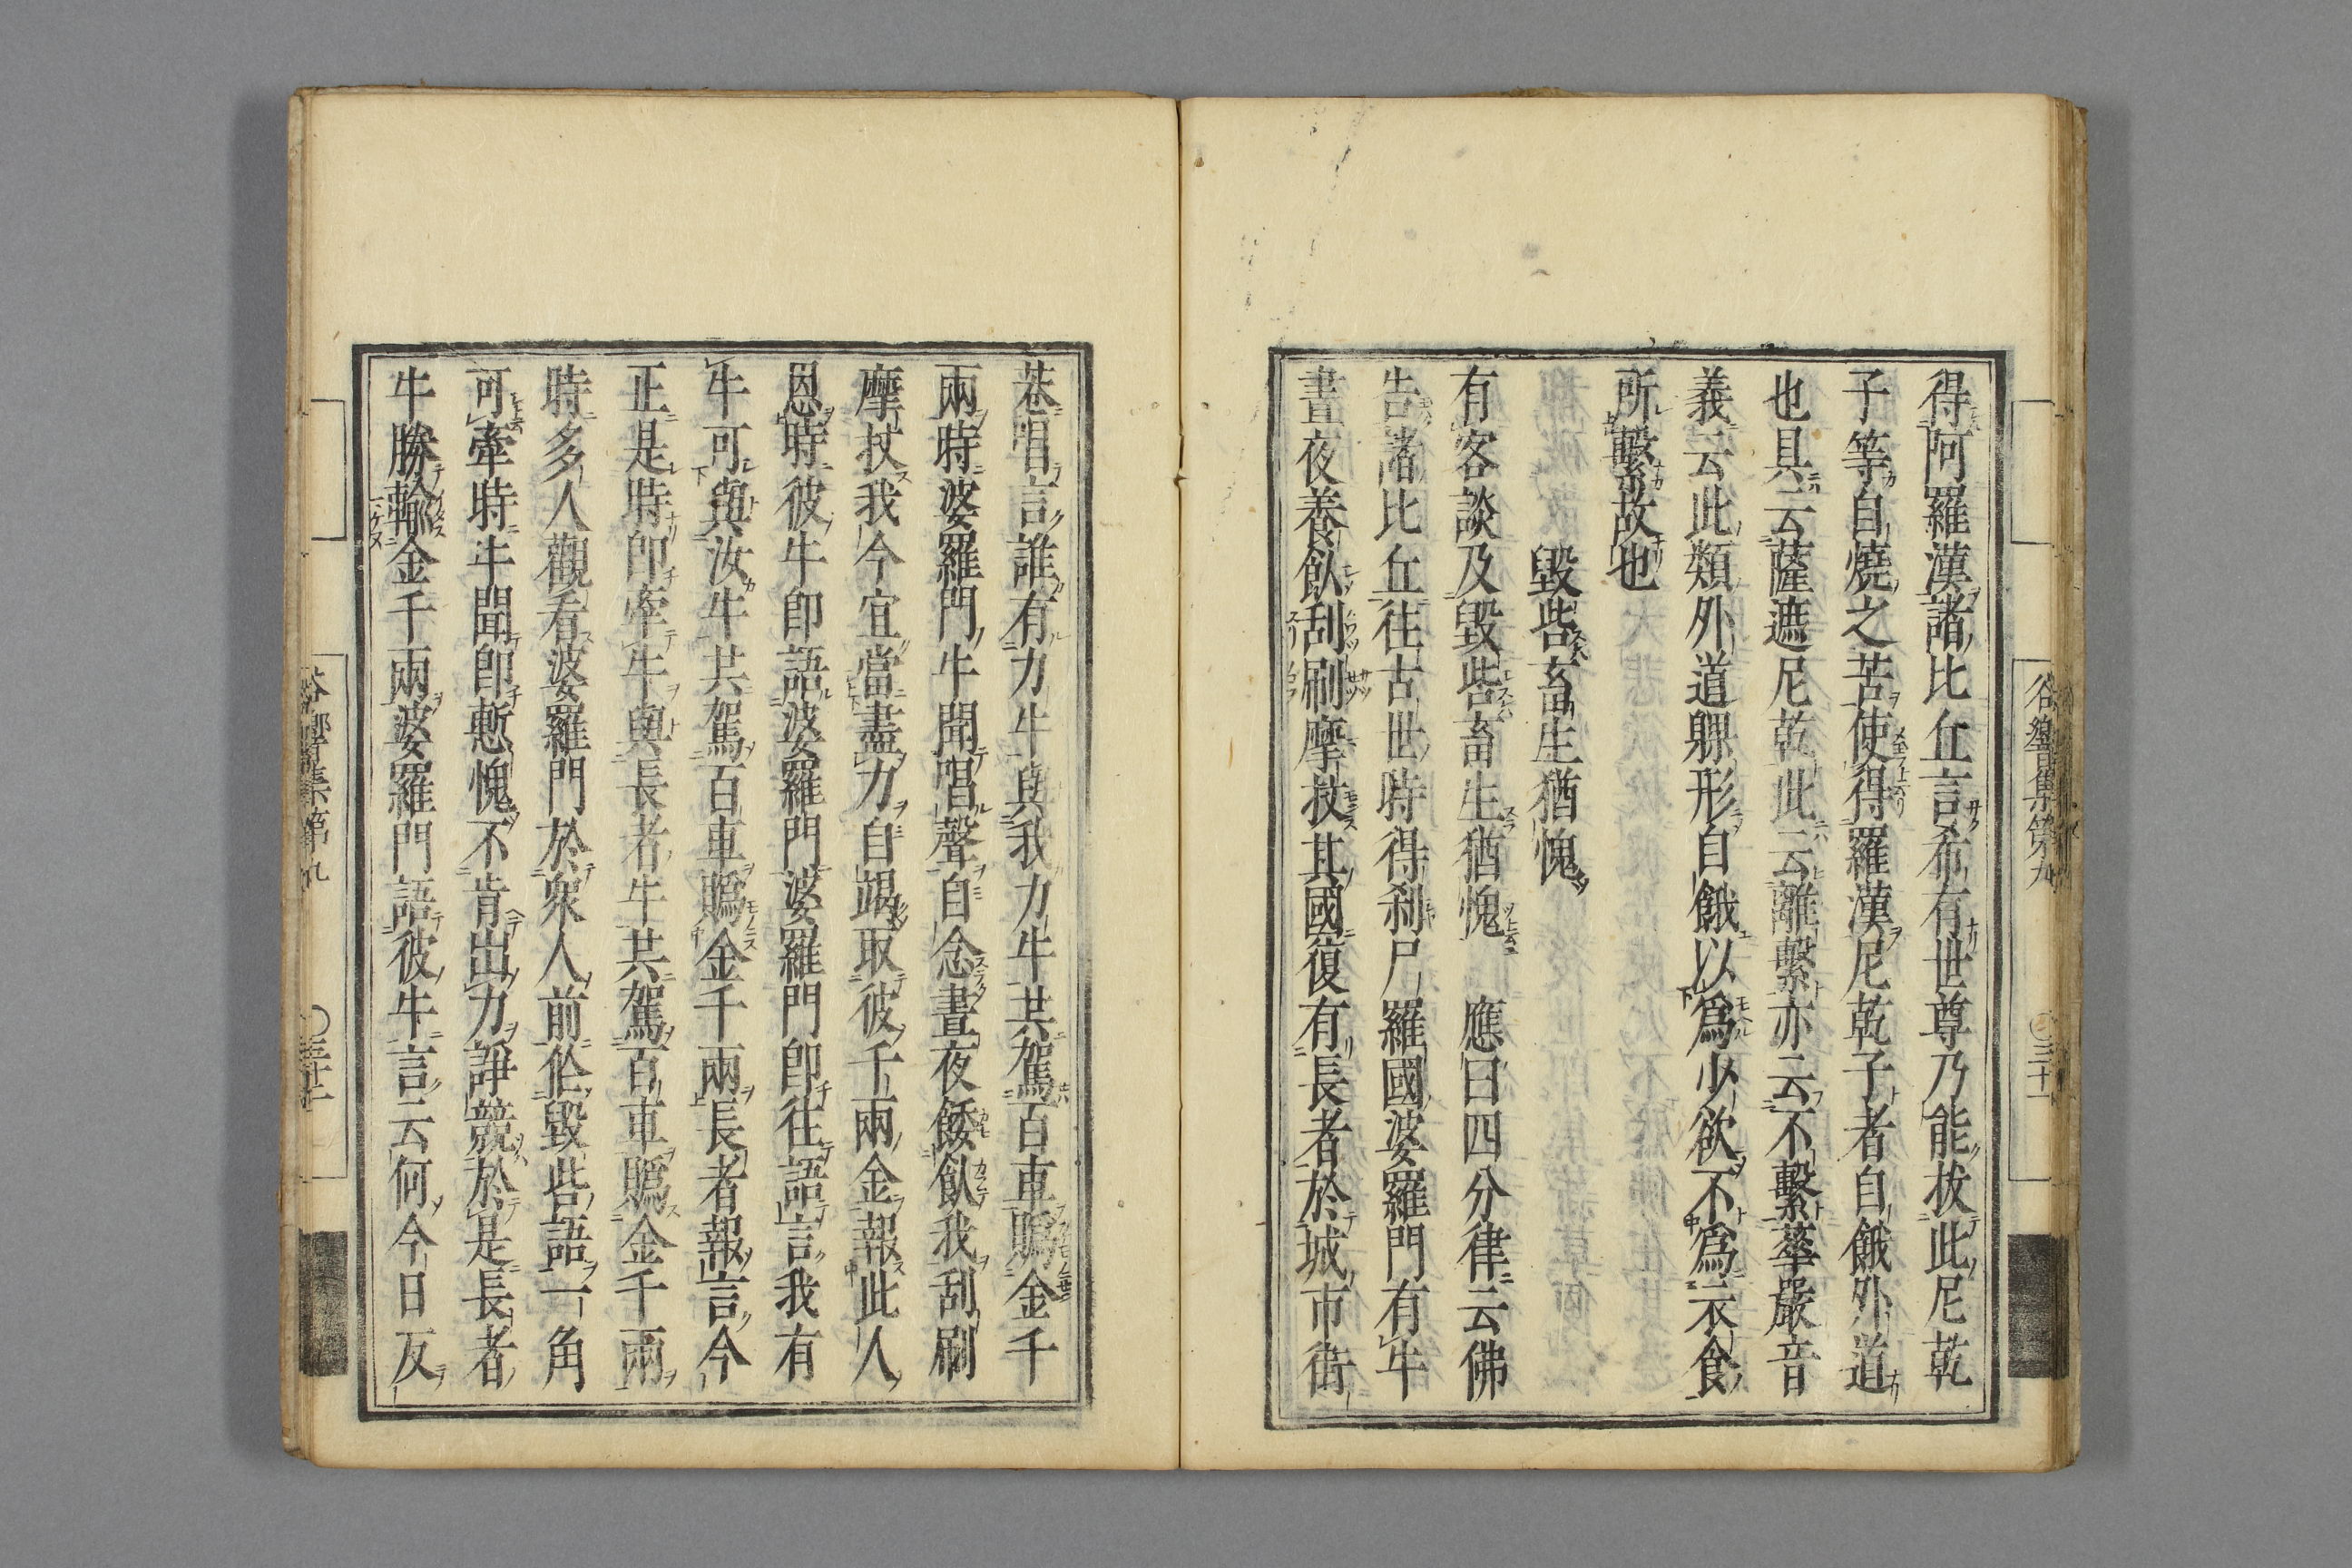 得阿羅漢諸比丘言希有世尊乃能拔此尼乾
子等自燒之苦使得羅漢尼乾子者自餓外道
也具云薩遮尼乾此云離繫亦云不繫華嚴音
義云此類外道躶形自餓以爲少欲不爲衣食
所繫故也
毀呰畜生猶愧
有客談及毀呰畜生猶愧 應曰四分律云佛
告諸比丘往古世時得刹尸羅國婆羅門有牛
晝夜養飲刮刷摩扠其國復有長者於城市街
谷響集第九 三十一
巷唱言誰有力牛與我力牛共駕百車賭金千
兩時婆羅門牛聞唱聲自念晝夜餧飲我刮刷
摩扠我今宜當盡力自竭取彼千兩金報此人
恩時彼牛卽語婆羅門婆羅門卽往語言我有
牛可與汝牛共駕百車賭金千兩長者報言今
正是時卽牽牛與長者牛共駕百車賭金千兩
時多人觀看婆羅門於衆人前作毀呰語一角
可牽時牛聞卽慙愧不肯出力諍競於是長者
牛勝輸金千兩婆羅門語彼牛言云何今日反
谷響集第九